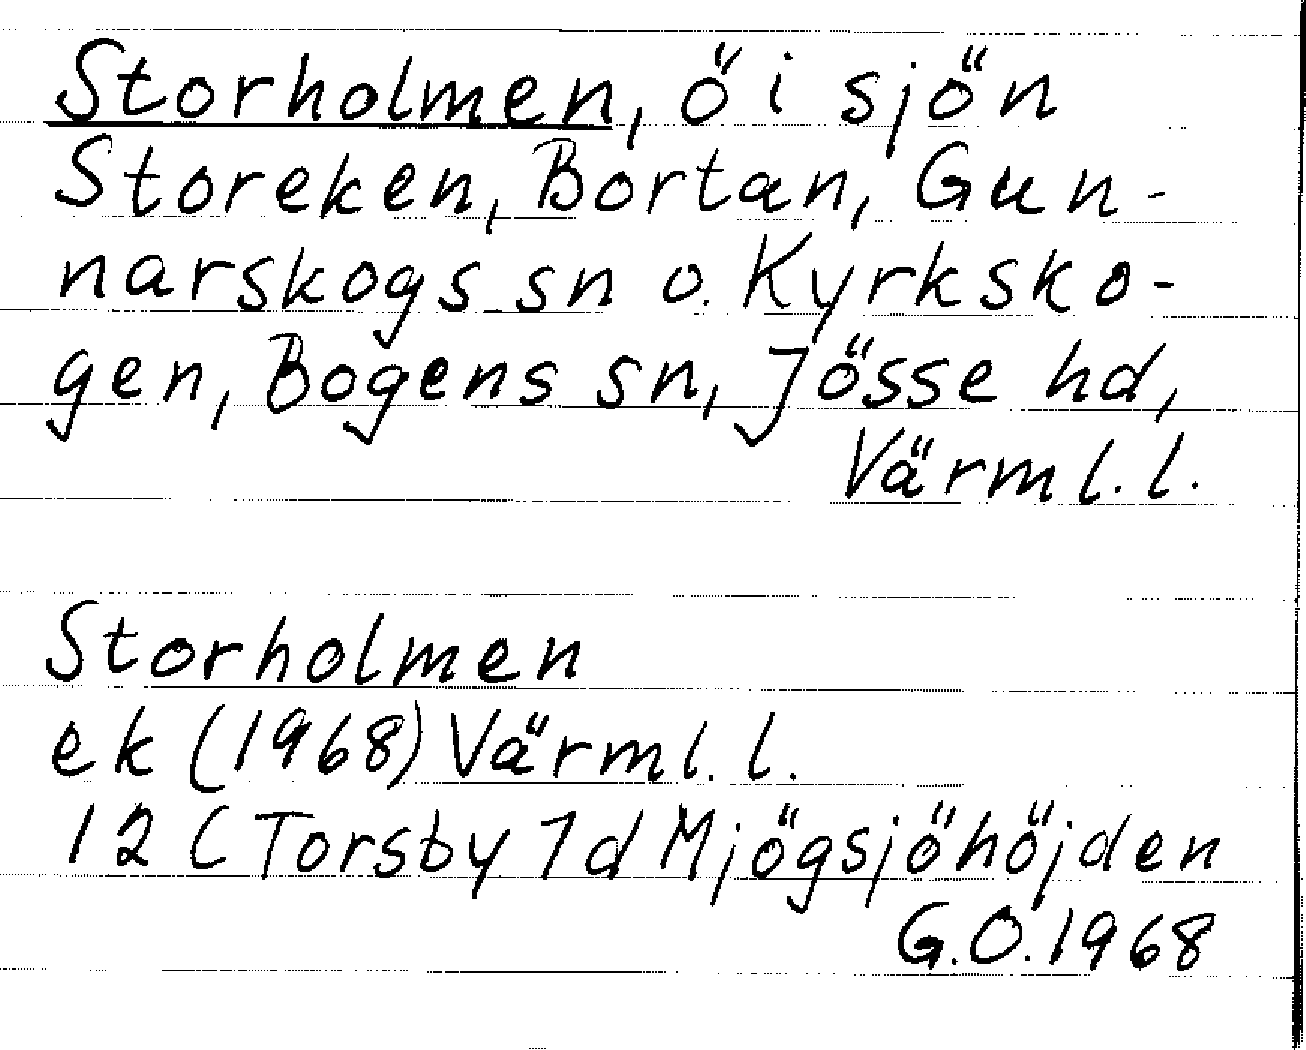 Storholmen, ö i sjön
Storeken, Bortan, Gun-
narskogs sn o. Kyrksko-
gen, Bogens sn, Jösse hd,
Värml. l.
Storholmen
ek (1968) Värml. l.
12 C Torsby 7 d Mjögsjöhöjden
G.O. 1968